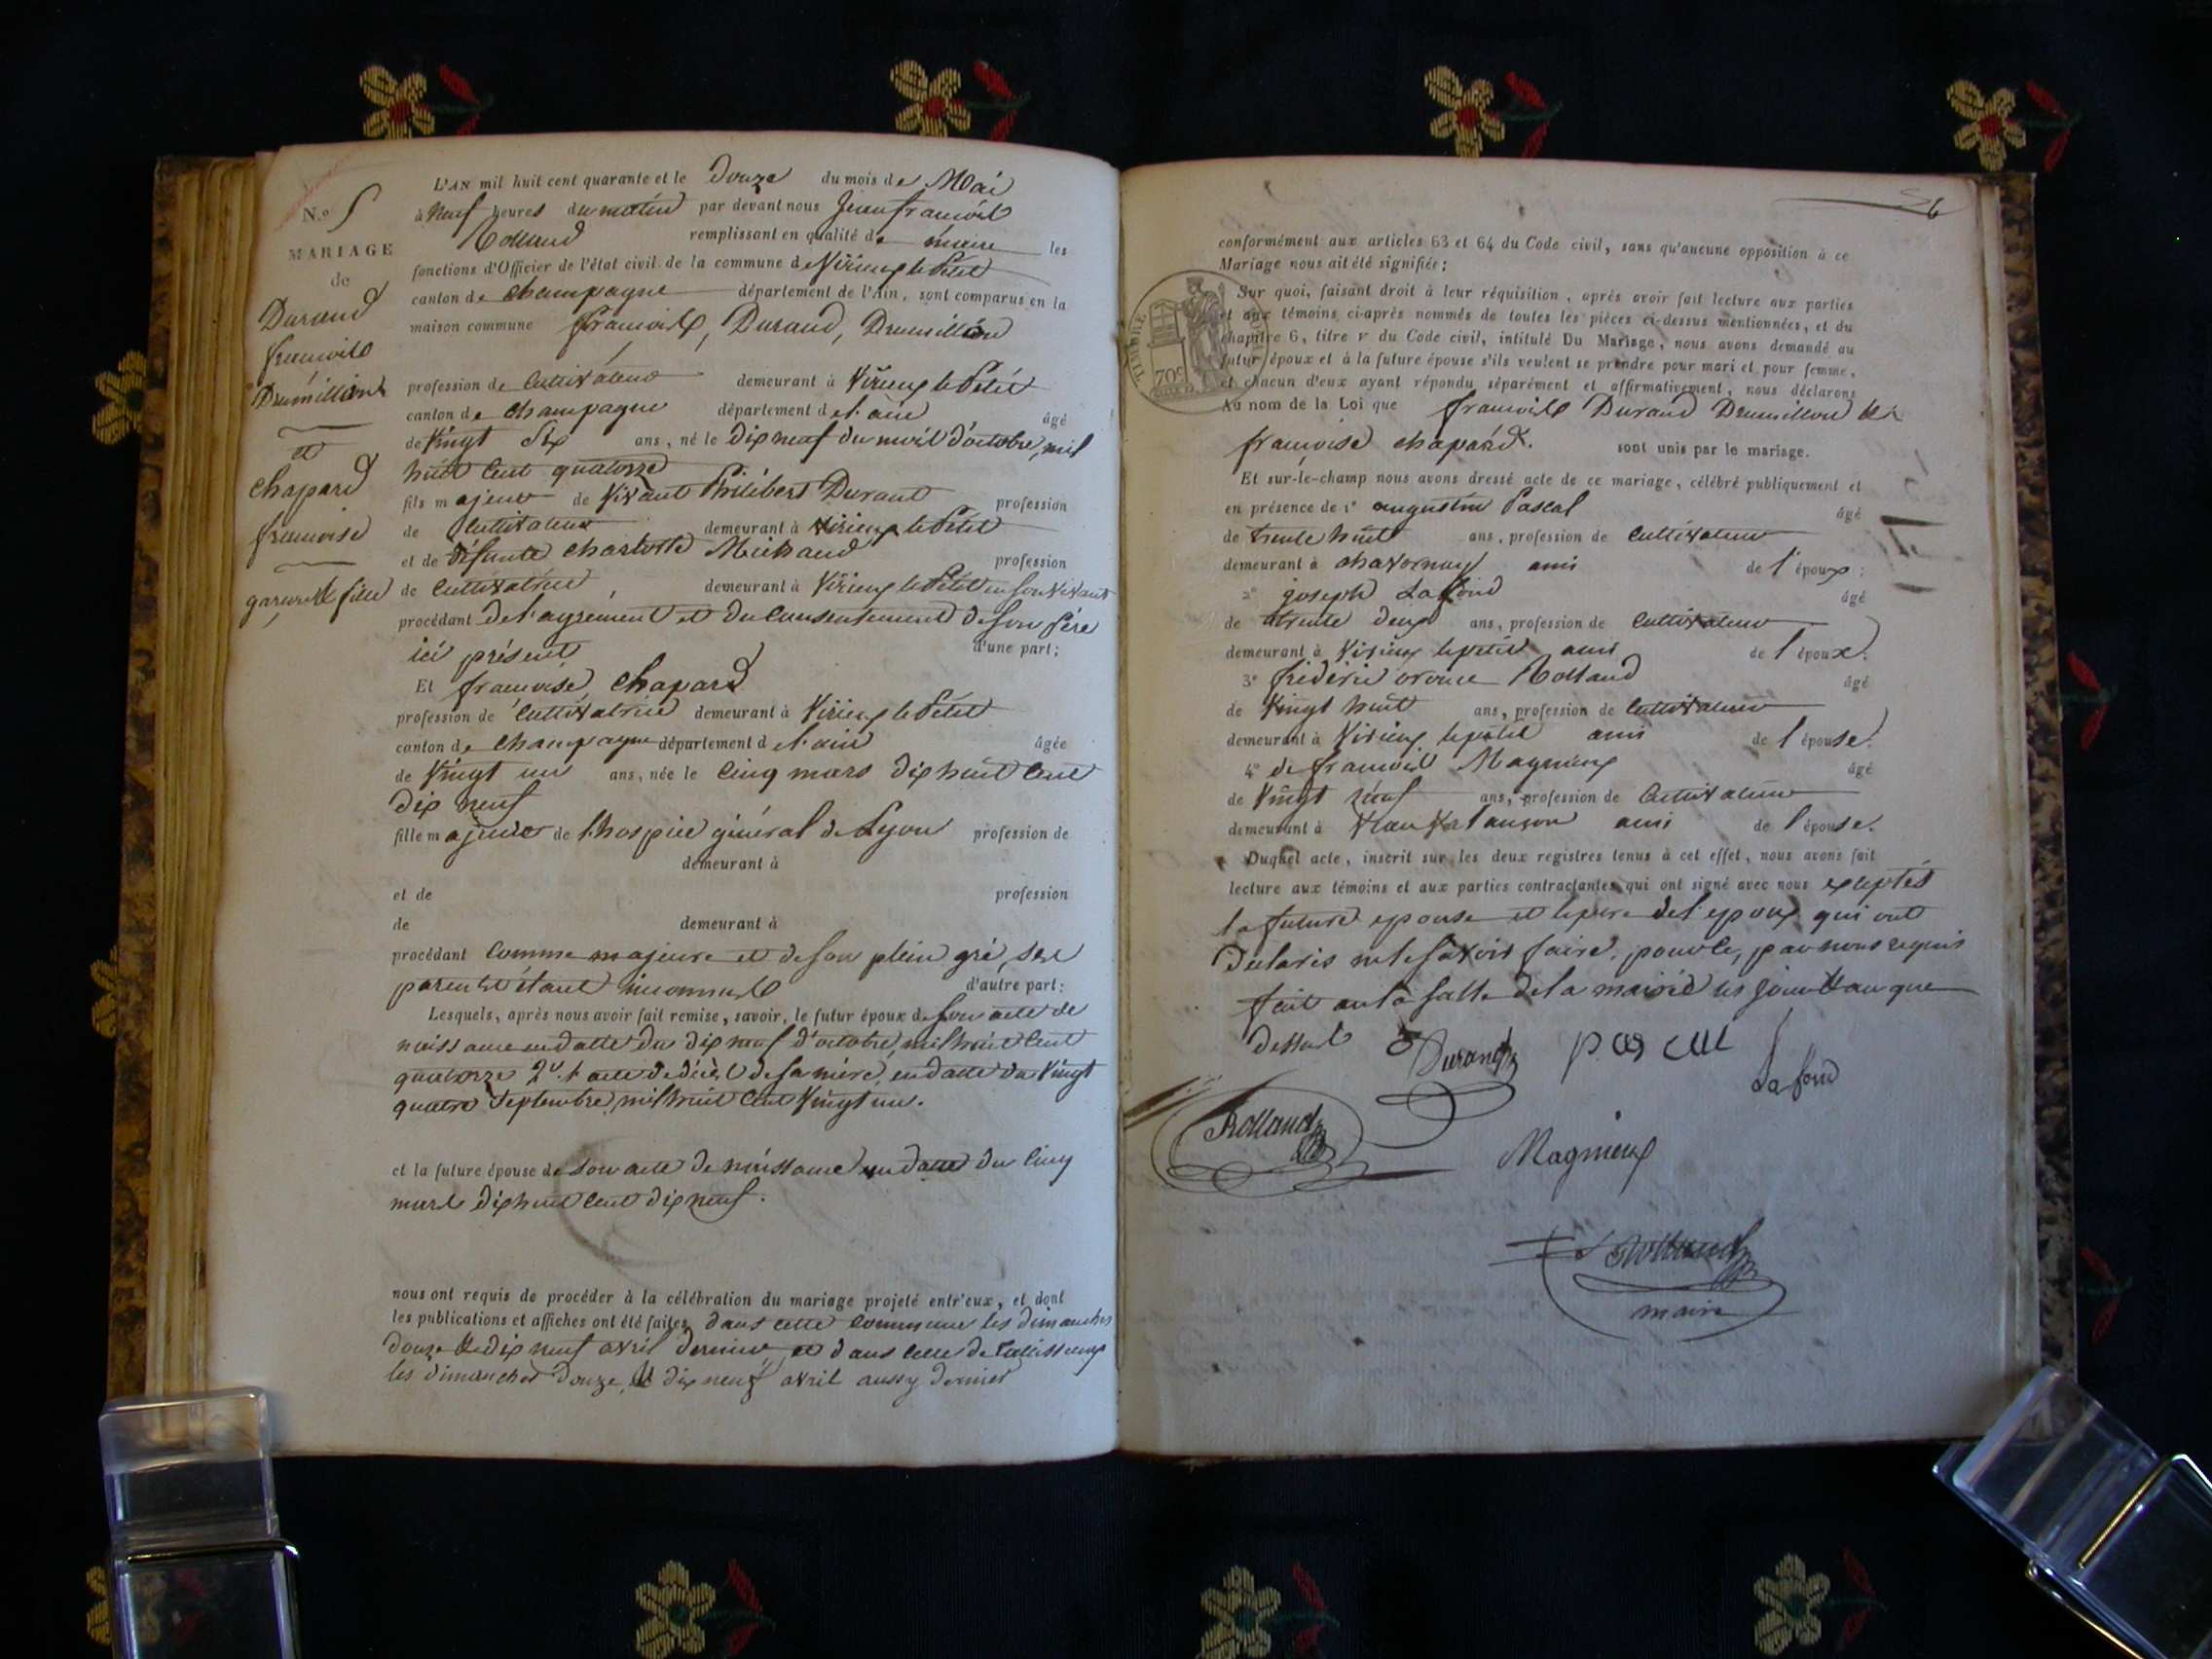 L'AN mil huit cent quarante et le Douze du mois de Mai
N.o 5
à Neuf heures du matin par devant nous Jean françois
Rolland remplissant en qualité de maire les
MARIAGE
fonctions d'Officier de l'état civil de la commune de Virieux le Petit
de
canton de Champagne département de l'Ain, sont comparus en la
Durand
maison commune françois, Durand, Drumillion
françois
Drumillion
profession de Cultivateur demeurant à Virieux le Petit
canton de Champagne département de l'ain âgé
et
de Vingt Six ans, né le Dix neuf du mois d'octobre, mil
huit Cent quatorze
Chapard
fils majeur de Vivant Philibert Durant profession
françoise
de Cultivateur demeurant à Virieux le Petit
et de défunte Charlotte Michaud profession
garçon et fille
de Cultivatrice, demeurant à Virieux le Petit en son vivant
procédant de l'agrement et du Consentement de son Père
ici présent d'une part;
Et françoise, Chapard
profession de Cultivatrice demeurant à Virieux le Petit
canton de Champagne département de l'ain âgée
de Vingt un ans, née le Cinq mars dix huit Cent
dix neuf
fille majeure de l'hospice général de Lyon profession de
demeurant à
et de profession
de demeurant à
procédant Comme majeure et de son plein gré, ses
parents étant inconnus d'autre part:
Lesquels, après nous avoir fait remise, savoir, le futur époux de son acte de
naissance en datte du dix neuf d'octobre, mil huit Cent
quatorze 2° l'acte de décès de sa mère, en datte du Vingt
quatre Septembre, mil huit Cent Vingt un.
et la future épouse de son acte de naissance en datte du Cinq
mars dix huit Cent dix neuf.
nous ont requis de procéder à la célébration du mariage projeté entr'eux, et dont
les publications et affiches ont été faites dans cette Commune les dimanches
douze et dix neuf avril dernier, et dans celle de
les dimanches douze, et dix neuf avril aussy dernier
6
conformément aux articles 63 et 64 du Code civil, sans qu'aucune opposition à ce
Mariage nous ait été signifiée;
Sur quoi, faisant droit à leur réquisition, après avoir fait lecture aux parties
et aux témoins ci-après nommés de toutes les pièces ci-dessus mentionnées, et du
chapitre 6, titre v du Code civil, intitulé Du Mariage, nous avons demandé au
futur époux et à la future épouse s'ils veulent se prendre pour mari et pour femme,
et chacun d'eux ayant répondu séparément et affirmativement, nous déclarons
TIMBRE
70c
Au nom de la Loi que françois Durand Drumillion et
françoise Chapard. sont unis par le mariage.
Et sur-le-champ nous avons dressé acte de ce mariage, célébré publiquement et
en présence de 1° augustin Pascal âgé
de trente huit ans, profession de Cultivateur
demeurant à Chavornay ami de l'époux;
2° joseph Lafond âgé
de trente deux ans, profession de Cultivateur
demeurant à Virieux le petit ami de l'époux;
3° fréderic Rolland âgé
de Vingt huit ans, profession de Cultivateur
demeurant à Virieux le petit ami de l'épouse.
4° de françois Magnieux âgé
de Vingt neuf ans, profession de Cultivateur
demeurant à ami de l'épouse.
Duquel acte, inscrit sur les deux registres tenus à cet effet, nous avons fait
lecture aux témoins et aux parties contractantes qui ont signé avec nous exeptés
la future epouse et le pere de l'epoux qui ont
déclarés ne le savoir faire, pour ce, par nous requis
fait en la salle de la mairie les jour et an que
dessus Durand pascal Lafond
Rolland
Magnieux
Rolland
maire